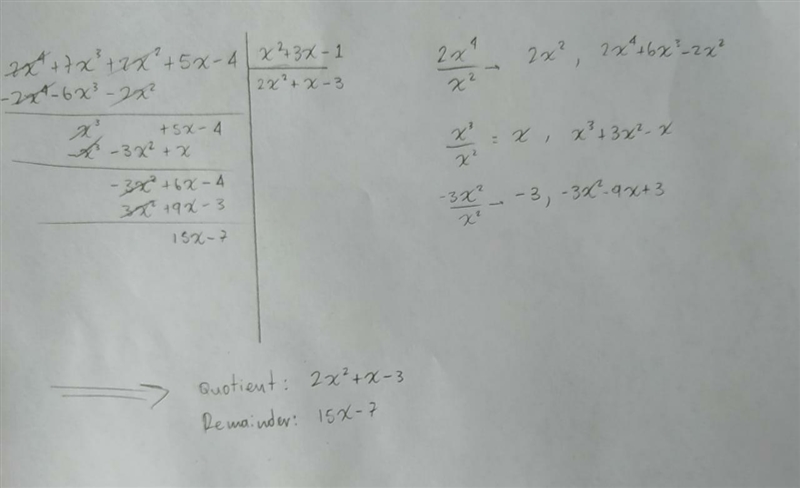 2x⁴+7x³+2x²+5x-4 | x²+3x-1
-2x⁴-6x³-2x² | 2x²+x-3
x³ +5x-4
-x³ -3x²+x
-3x²+6x-4
3x²+9x-3
15x-7
2x⁴/x² - 2x², 2x⁴+6x³-2x²
x³/x² = x, x³+3x²-x
-3x²/x² - -3, -3x²-9x+3
⟹ Quotient: 2x²+x-3
Remainder: 15x-7